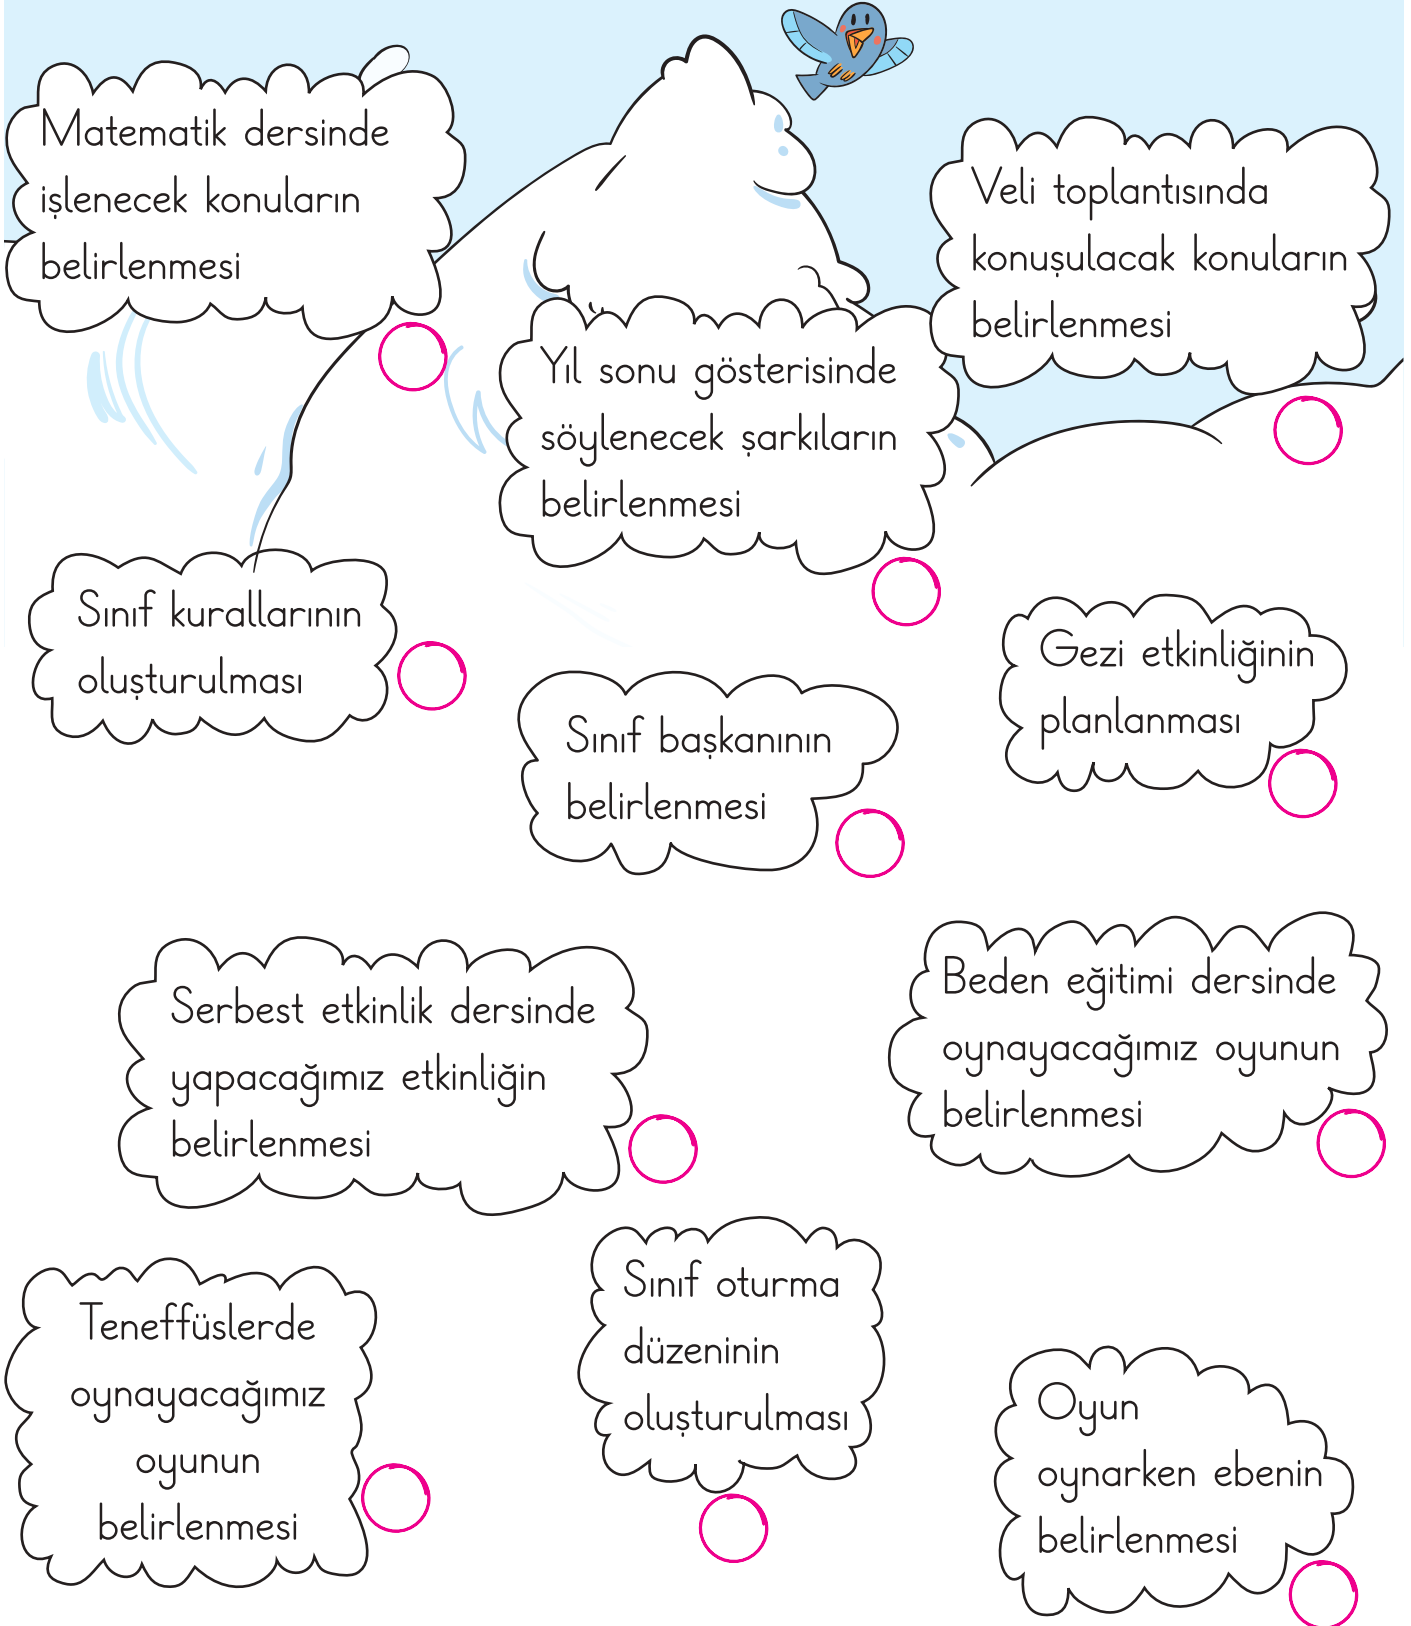 Matematik dersinde
işlenecek konuların
belirlenmesi
Veli toplantısında
konuşulacak konuların
belirlenmesi
Yıl sonu gösterisinde
söylenecek şarkıların
belirlenmesi
Sınıf kurallarının
oluşturulması
Gezi etkinliğinin
planlanması
Sınıf başkanının
belirlenmesi
Serbest etkinlik dersinde
yapacağımız etkinliğin
belirlenmesi
Beden eğitimi dersinde
oynayacağımız oyunun
belirlenmesi
Teneffüslerde
oynayacağımız
oyunun
belirlenmesi
Sınıf oturma
düzeninin
oluşturulması
Oyun
oynarken ebenin
belirlenmesi